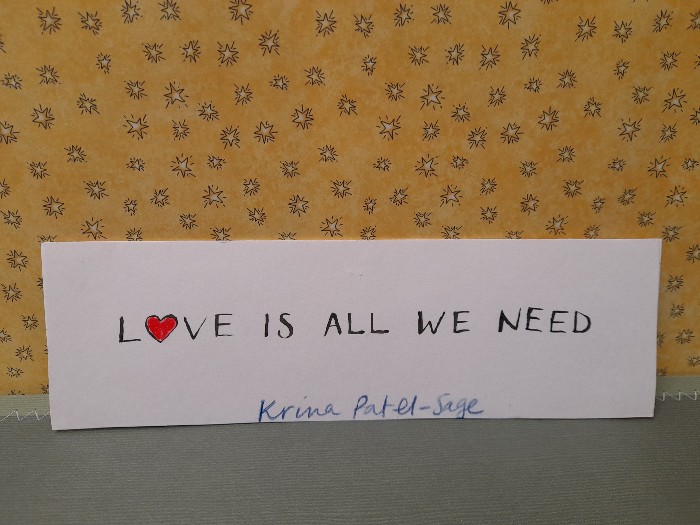 L❤VE IS ALL WE NEED
Krina Patel-Sage